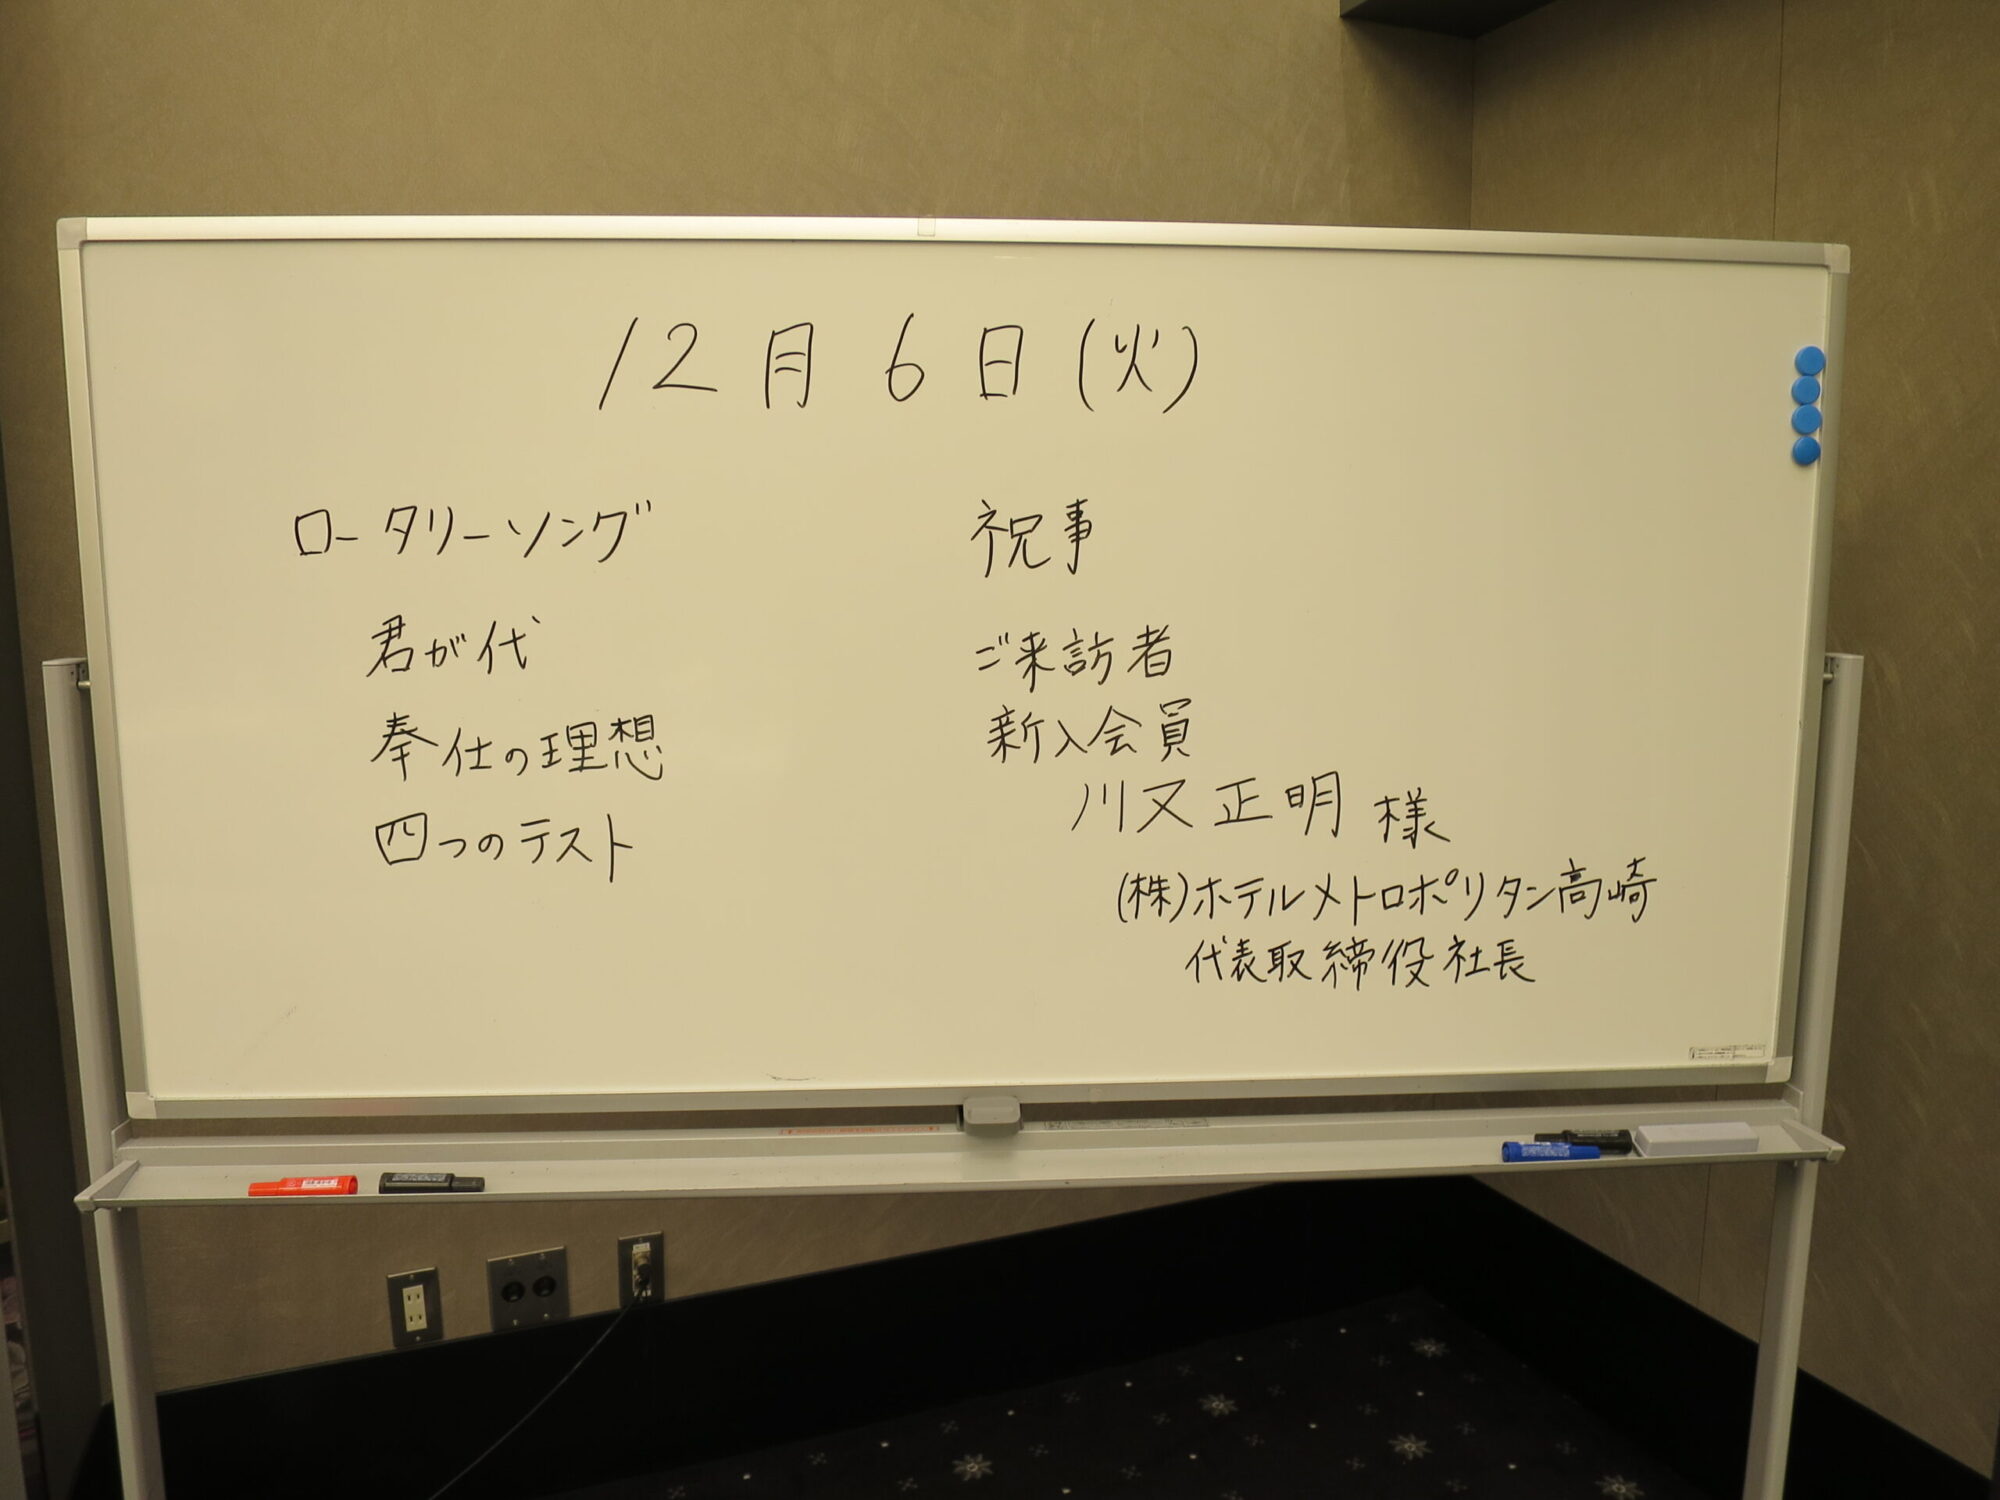 12月6日(火)
ロータリーソング
君が代
奉仕の理想
四つのテスト
祝事
ご来訪者
新入会員
川又正明 様
(株)ホテルメトロポリタン高崎
代表取締役社長